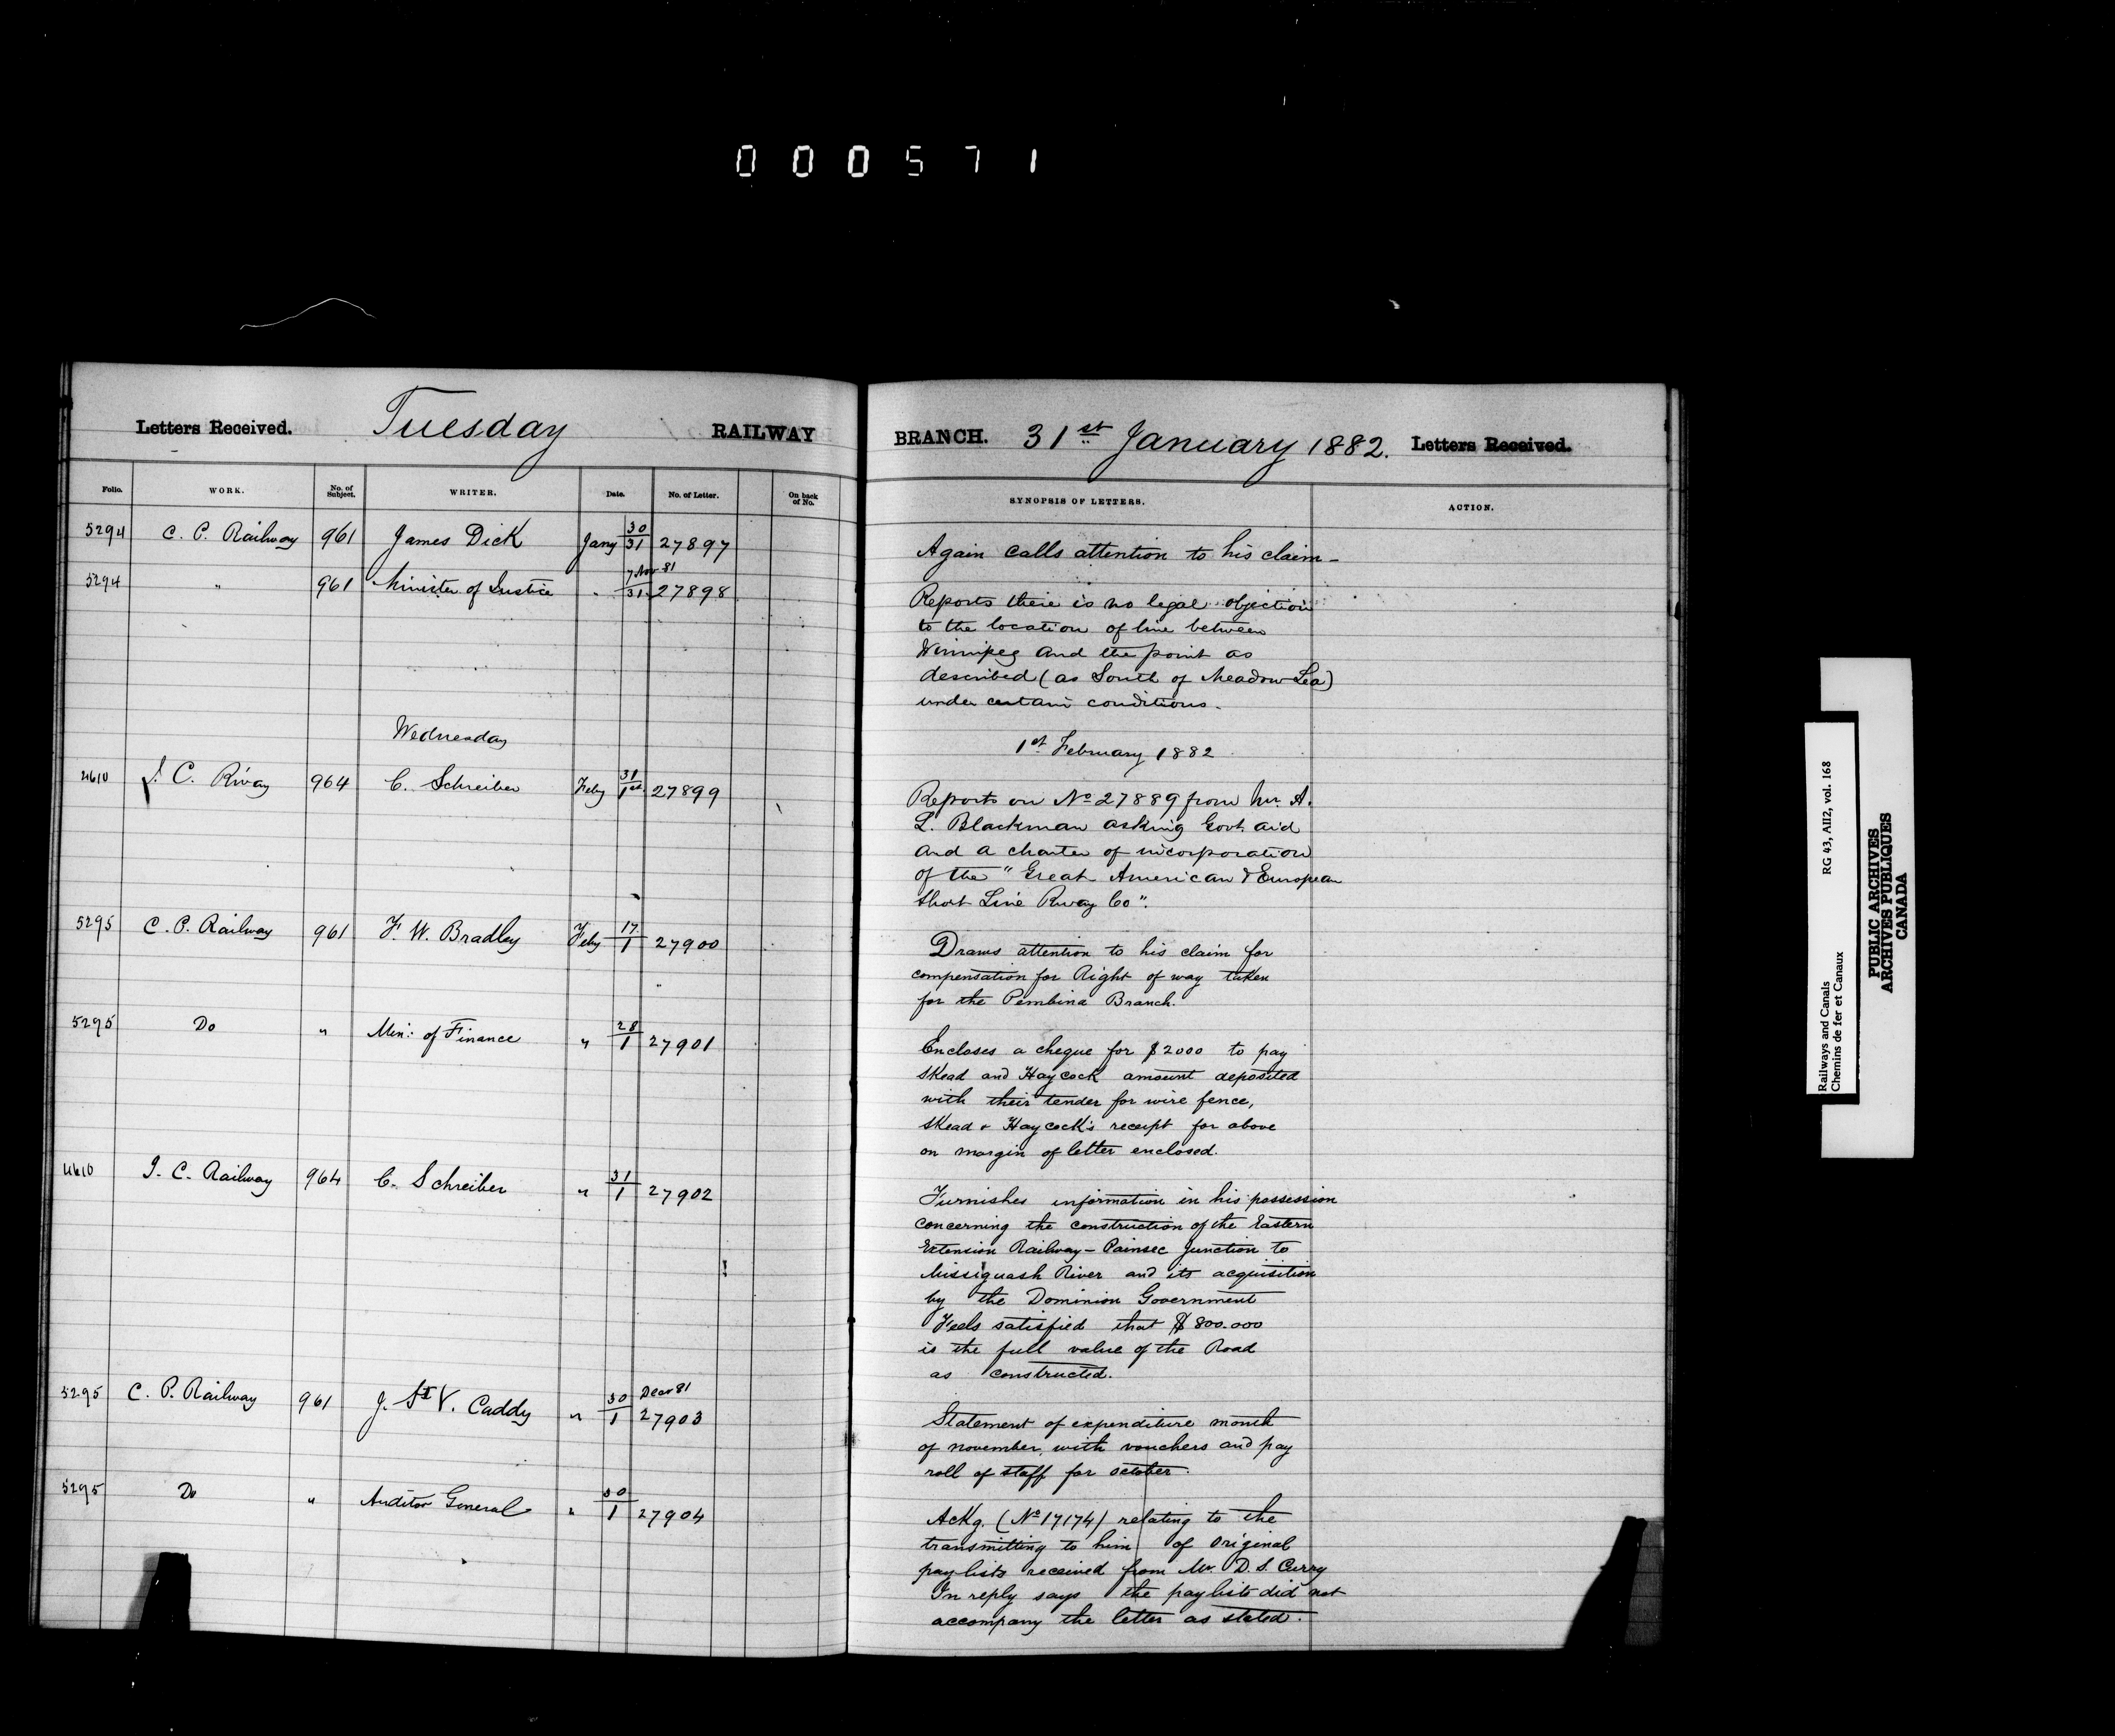 000571
Letters Received. Tuesday RAILWAY BRANCH. 31st January 1882. Letters Received.
Folio. WORK. No. of Subject. WRITER. Date. No. of Letter. On back of No. SYNOPSIS OF LETTERS. ACTION.
5294 C. P. Railway 961 James Dick Jany 30/31 27897
Again calls attention to his claim -
5294 " 961 Minister of Justice " 7 Nov 81/31 27898
Reports there is no legal objection
to the location of line between
Winnipeg and the point as
described (as South of Meadow Lea)
under certain conditions.
Wednesday 1st February 1882
4610 I. C. Rway 964 C. Schreiber Feby 31/1st 27899
Reports on No 27889 from Mr. A.
L. Blackman asking Govt. aid
and a charter of incorporation
of the "Great American & European
Short Line Rway Co".
5295 C. P. Railway 961 F. W. Bradley Feby 17/1 27900
Draws attention to his claim for
compensation for Right of way taken
for the Pembina Branch.
5295 Do " Min: of Finance " 28/1 27901
Encloses a cheque for $2000 to pay
Skead and Haycock amount deposited
with their tender for wire fence,
Skead & Haycock's receipt for above
on margin of letter enclosed.
4610 I. C. Railway 964 C. Schreiber " 31/1 27902
Furnishes information in his possession
concerning the construction of the Eastern
Extension Railway - Painsec Junction to
Missiquash River and its acquisition
by the Dominion Government
Feels satisfied that $800.000
is the full value of the Road
as constructed.
5295 C. P. Railway 961 J. St V. Caddy " 30 Decr 81/1 27903
Statement of expenditure month
of november, with vouchers and pay
roll of staff for october.
5295 Do " Auditor General " 30/1 27904
Ackg. (No 17174) relating to the
transmitting to him of original
paylists received from Mr. D. S. Curry
In reply says the paylists did not
accompany the letter as stated.
Railways and Canals RG 43, AII2, vol. 168
Chemins de fer et Canaux
PUBLIC ARCHIVES
ARCHIVES PUBLIQUES
CANADA